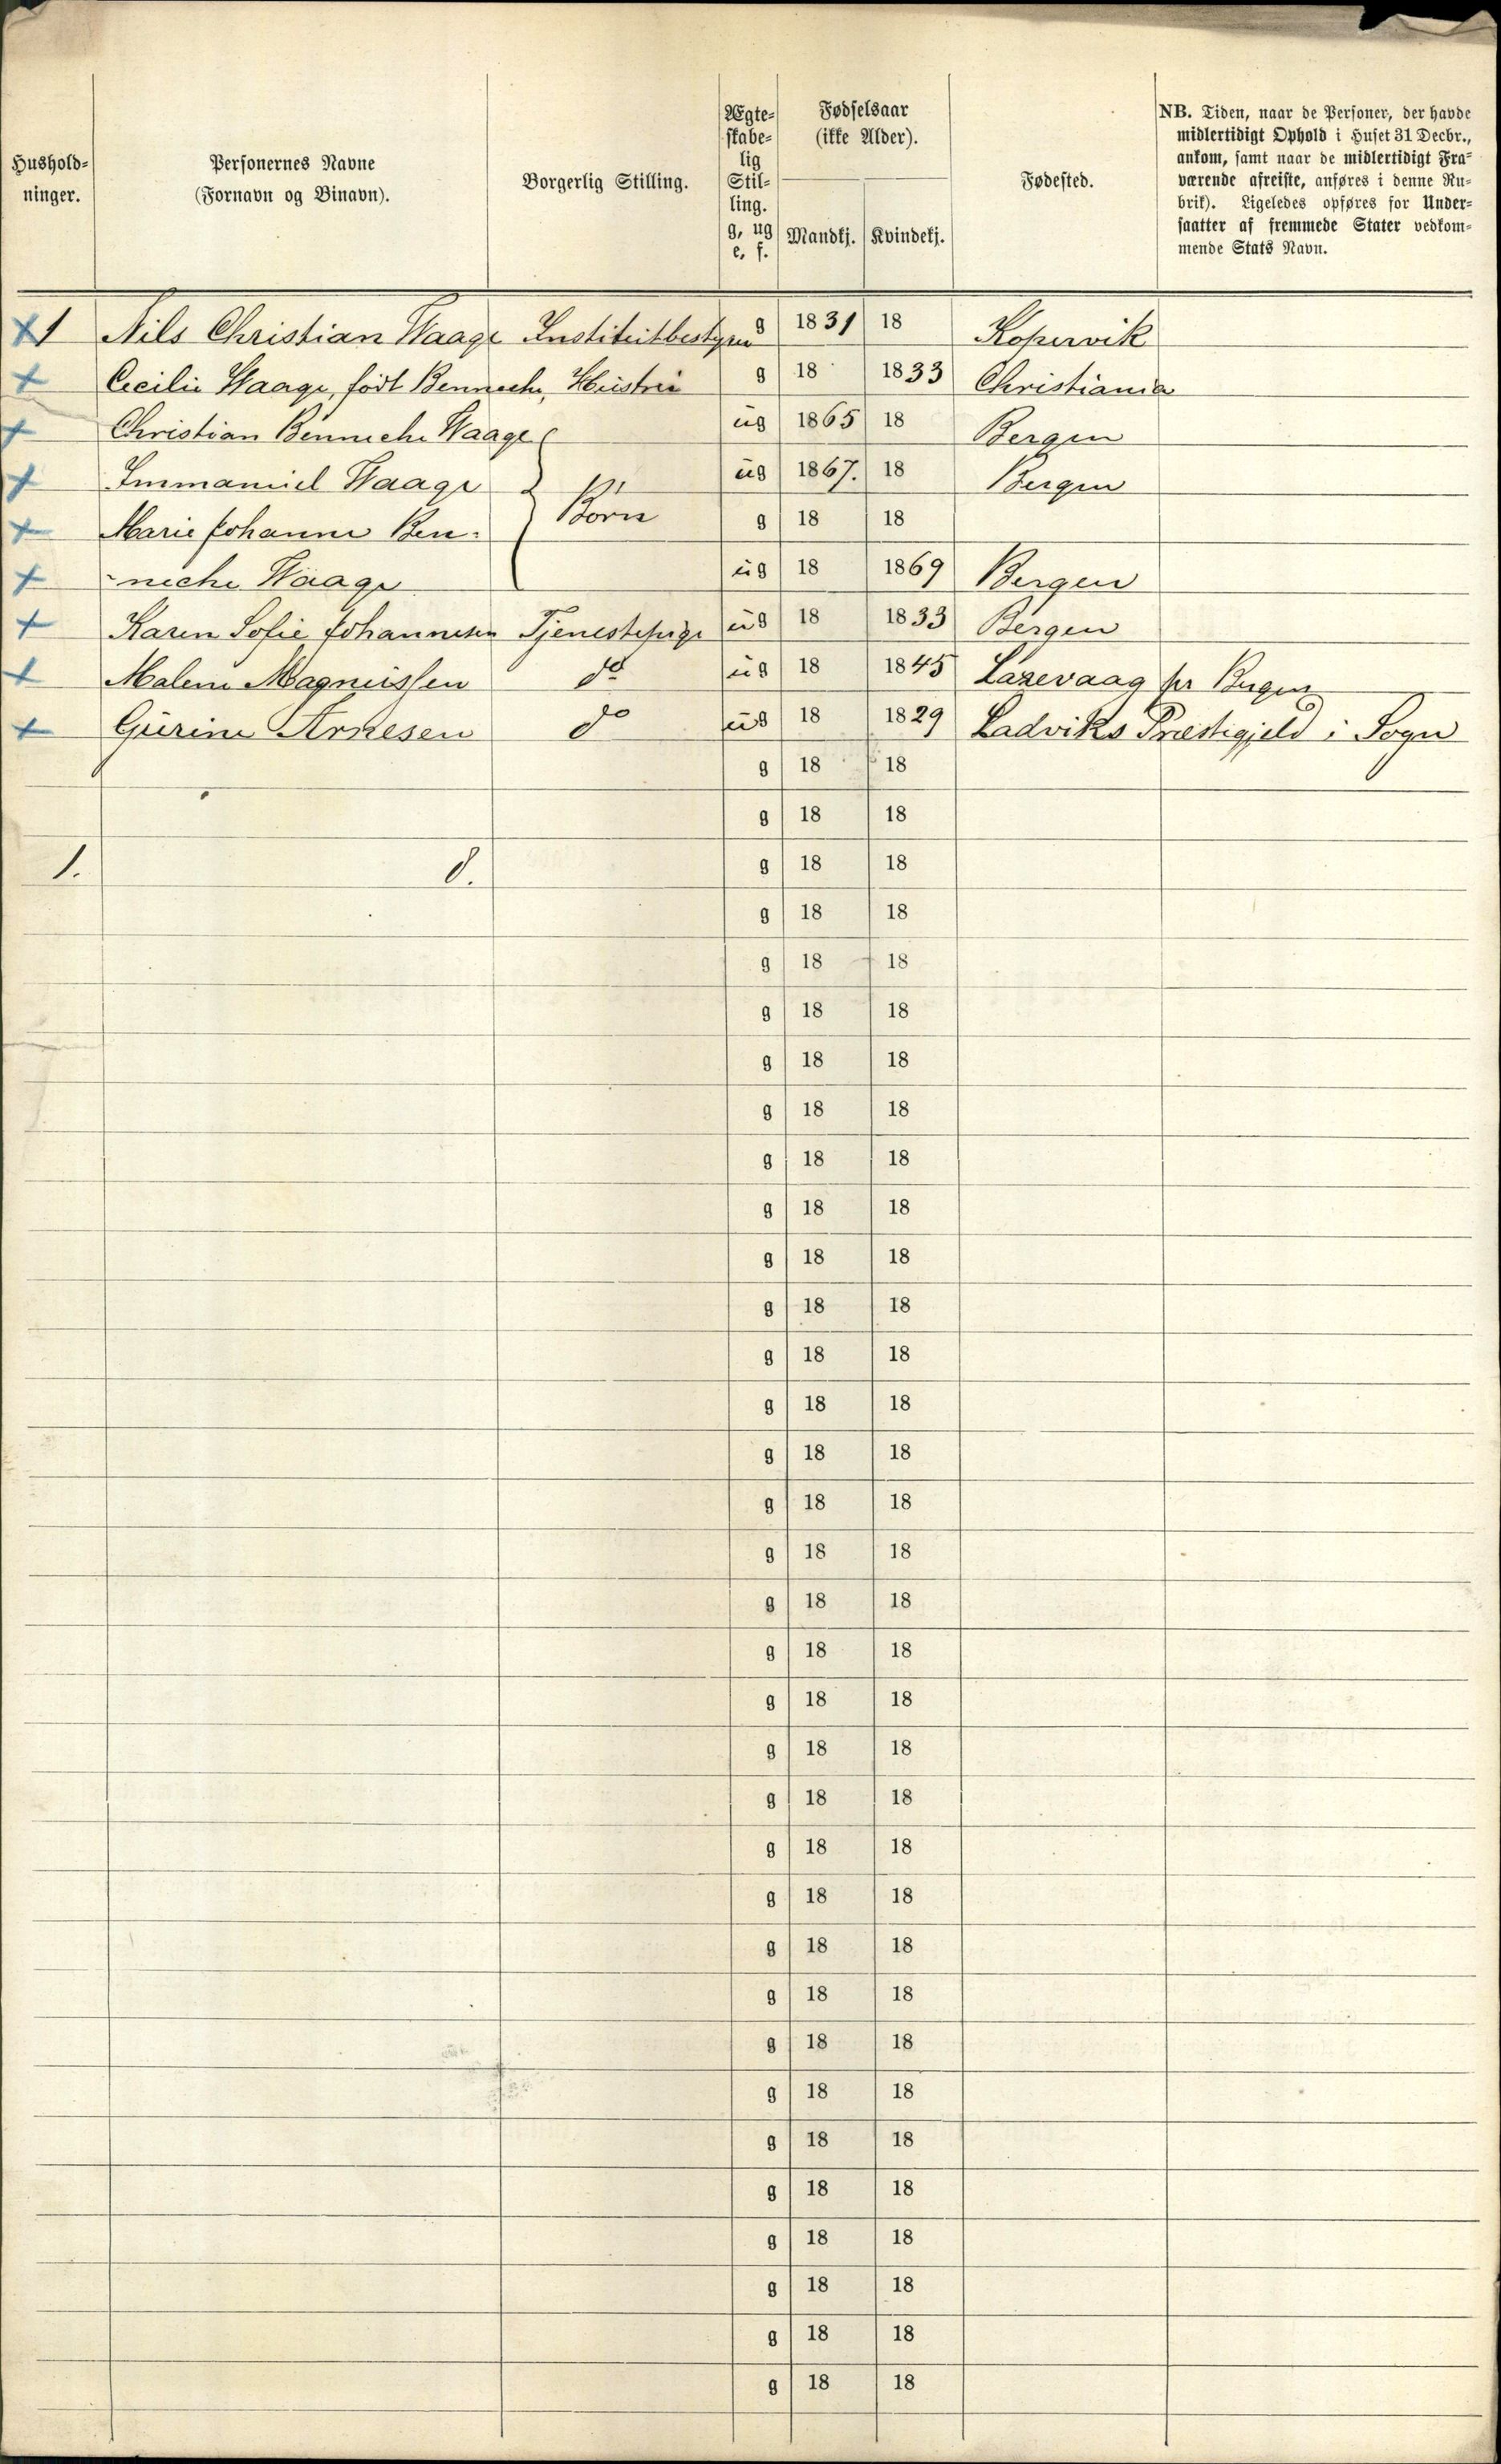 Hushold-
ninger.
Personernes Navne
(Fornavn og Binavn).
Borgerlig Stilling.
Ægte-
skabe-
lig
Stil-
ling.
g, ug
e, f.
Fødselsaar
(ikke Alder).
Mandkj. Kvindekj.
Fødested.
NB. Tiden, naar de Personer, der havde
midlertidigt Ophold i Huset 31 Decbr.,
ankom, samt naar de midlertidigt Fra-
værende afreiste, anføres i denne Ru-
brik). Ligeledes opføres for Under-
saatter af fremmede Stater vedkom-
mende Stats Navn.
1 Nils Christian Waage Institutbestyrer g 1831 18 Kopervik
Cecilie Waage, født Benneche, Hustru g 18 1833 Christiania
Christian Benneche Waage ug 1865 18 Bergen
Immanuel Waage ug 1867. 18 Bergen
Børn
Marie Johanne Ben- g 18 18
-neche Waage ug 18 1869 Bergen
Karen Sofie Johannesen Tjenestepige ug 18 1833 Bergen
Malene Magnussen do ug 18 1845 Laxevaag pr Bergen
Gurine Arnesen do ug 18 1829 Ladviks Præstegjeld i Sogn
g 18 18
g 18 18
1. 8. g 18 18
g 18 18
g 18 18
g 18 18
g 18 18
g 18 18
g 18 18
g 18 18
g 18 18
g 18 18
g 18 18
g 18 18
g 18 18
g 18 18
g 18 18
g 18 18
g 18 18
g 18 18
g 18 18
g 18 18
g 18 18
g 18 18
g 18 18
g 18 18
g 18 18
g 18 18
g 18 18
g 18 18
g 18 18
g 18 18
g 18 18
g 18 18